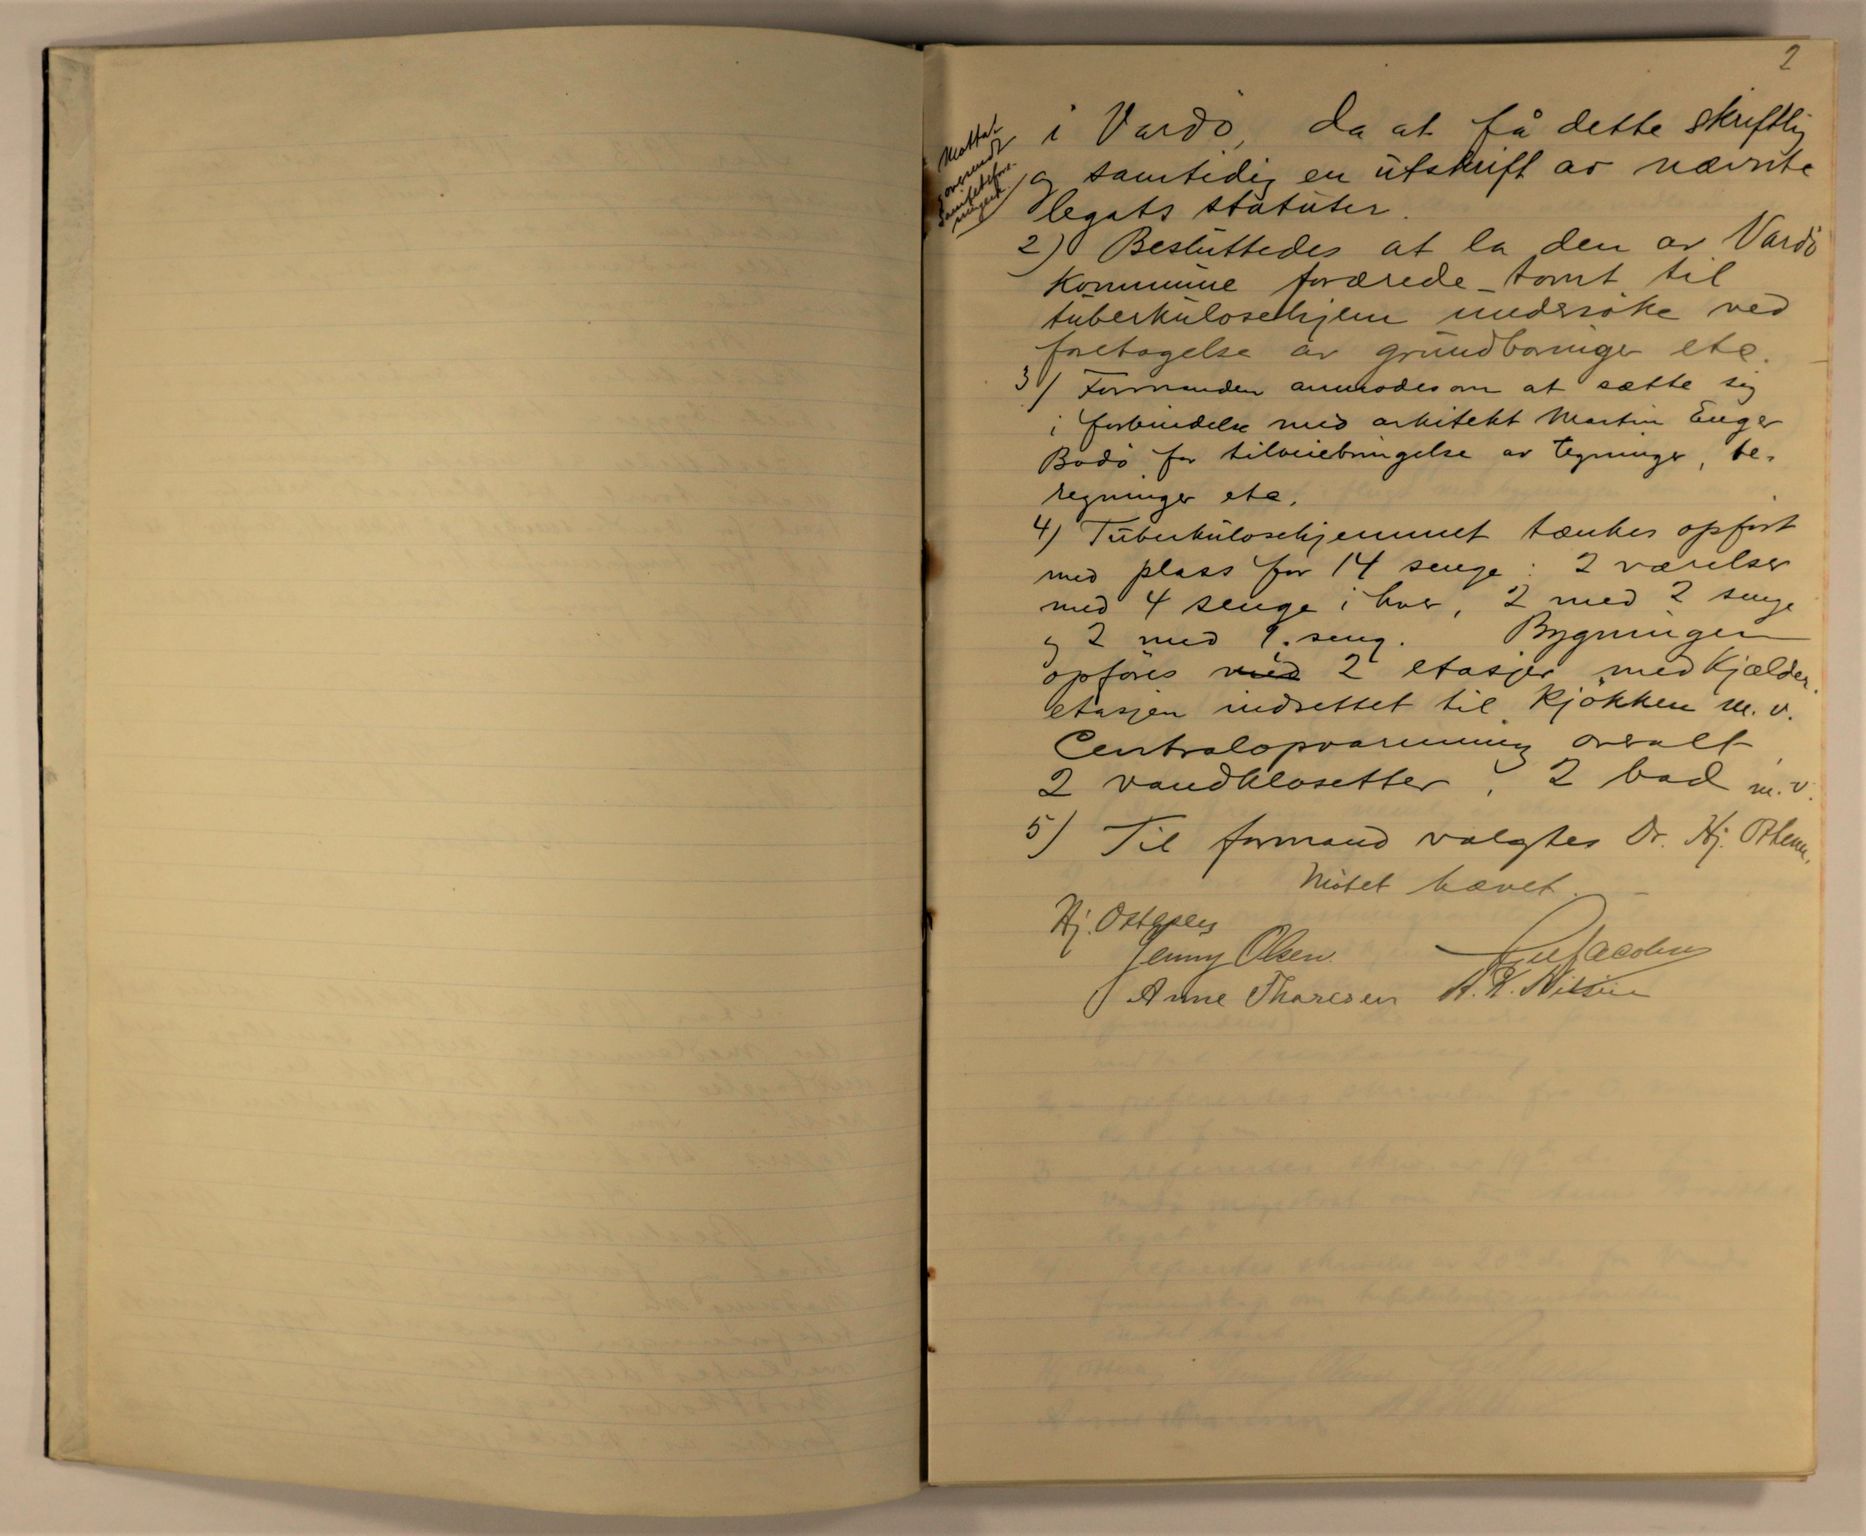 2
i Vardö, da at få dette skriftlig
og samtidig en utskrift av nævnte
legats statuter.
2) Besluttedes at la den av Vardö
Kommune forærede tomt til
tuberkulosehjem undersöke ved
foretagelse av grundboringer etc.
3) Formanden anmodes om at sætte sig
i forbindelse med arkitekt Martin Enger
Bodö for tilveiebringelse av tegninger, be-
regninger etc.
4) Tuberkulosehjemmet tænkes opfört
med plass for 14 senge: 2 værelser
med 4 senge i hver, 2 med 2 senge
og 2 med 1 seng. Bygningen
opföres med 2 etasjer med Kjælder.
etasjen indsettet til kjökken m.v.
Centralopvarmning overalt
2 vandklosetter, 2 bad m.v.
5) Til formand valgtes Dr. Hj.
Mötet hævet.
Hj.
Jenny Olsen Jacobsen
Anne Thoresen